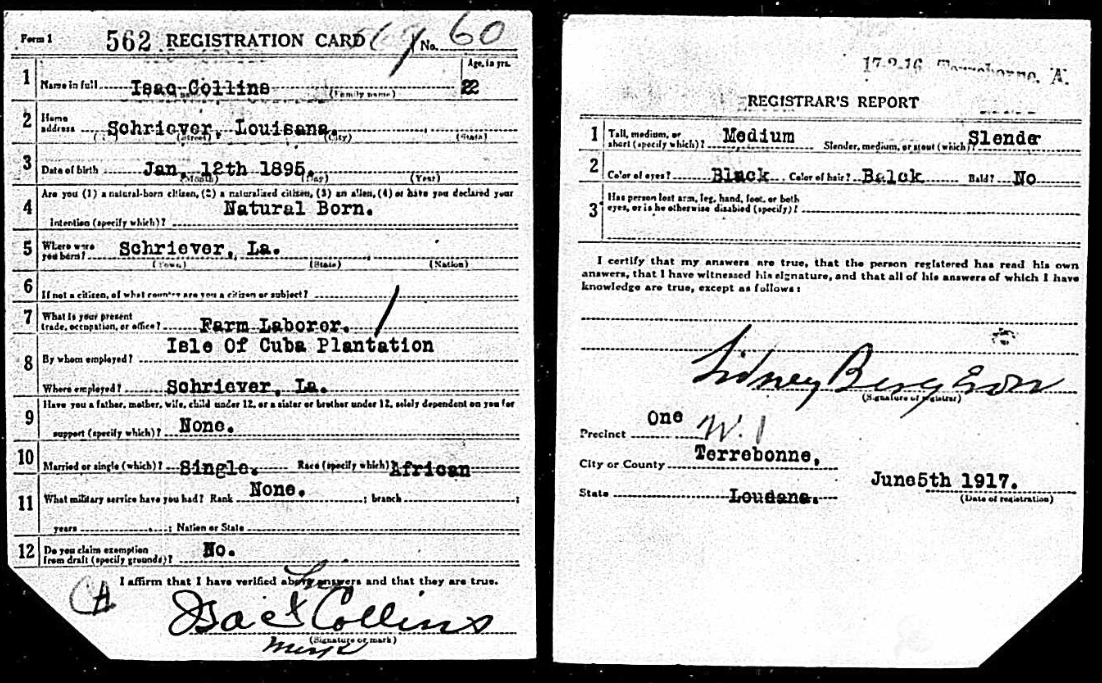 Form 1 562 REGISTRATION CARD No. 60
Age, in yrs.
1 Name in full Isac Collins 22
(Family name)
2 Home address Schriever, Louisana.
(Street) (City) (State)
3 Date of birth Jan. 12th 1895.
(Month) (Day) (Year)
4 Are you (1) a natural-born citizen, (2) a naturalized citizen, (3) an alien, (4) or have you declared your
intention (specify which)? Natural Born.
5 Where were you born? Schriever, La.
(Town) (State) (Nation)
6 If not a citizen, of what country are you a citizen or subject?
7 What is your present trade, occupation, or office? Farm Laborer.
8 By whom employed? Isle Of Cuba Plantation
Where employed? Schriever, La.
9 Have you a father, mother, wife, child under 12, or a sister or brother under 12, solely dependent on you for
support (specify which)? None.
10 Married or single (which)? Single. Race (specify which)? African
11 What military service have you had? Rank None. ; branch ;
years ; Nation or State
12 Do you claim exemption from draft (specify grounds)? No.
I affirm that I have verified above answers and that they are true.
his
Isac X Collins
(Signature or mark)
mark
17-2-16 Terrebonne, A.
REGISTRAR'S REPORT
1 Tall, medium, or short (specify which)? Medium Slender, medium, or stout (which)? Slende
2 Color of eyes? Black Color of hair? Balck Bald? No
3 Has person lost arm, leg, hand, foot, or both
eyes, or is he otherwise disabled (specify)?
I certify that my answers are true, that the person registered has read his own
answers, that I have witnessed his signature, and that all of his answers of which I have
knowledge are true, except as follows:
Sidney Bergeron
(Signature of registrar)
Precinct One W. 1
City or County Terrebonne,
State Loudana. June5th 1917.
(Date of registration)